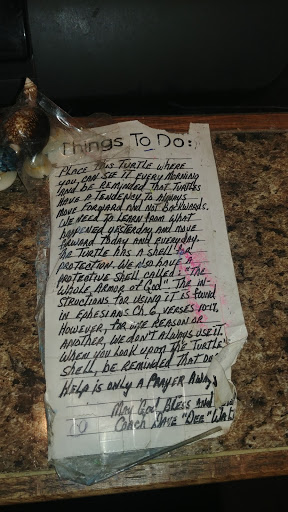 Things To Do:
PLACE THIS TURTLE WHERE
YOU CAN SEE IT EVERY MORNING
AND BE REMINDED THAT TURTLES
HAVE A TENDENSY TO ALWAYS
MOVE FORWARD AND NOT BACKWARDS.
WE NEED TO LEARN FROM WHAT
HAPPENED YESTERDAY AND MOVE
FORWARD TODAY AND EVERYDAY.
THE TURTLE HAS A SHELL FOR
PROTECTION. WE ALSO HAVE A
PROTECTIVE SHELL CALLED: "THE
WHOLE ARMOR OF GOD" THE IN-
STRUCTIONS FOR USING IT IS FOUND
IN EPHESIANS CH. 6, VERSES 10-17.
HOWEVER, FOR ONE REASON OR
ANOTHER, WE DON'T ALWAYS USE IT.
WHEN YOU LOOK UPON THE TURTLE
SHELL, BE REMINDED THAT
HELP IS ONLY A PRAYER AWAY
MAY GOD BLESS AND
COACH DAVE "DEE"